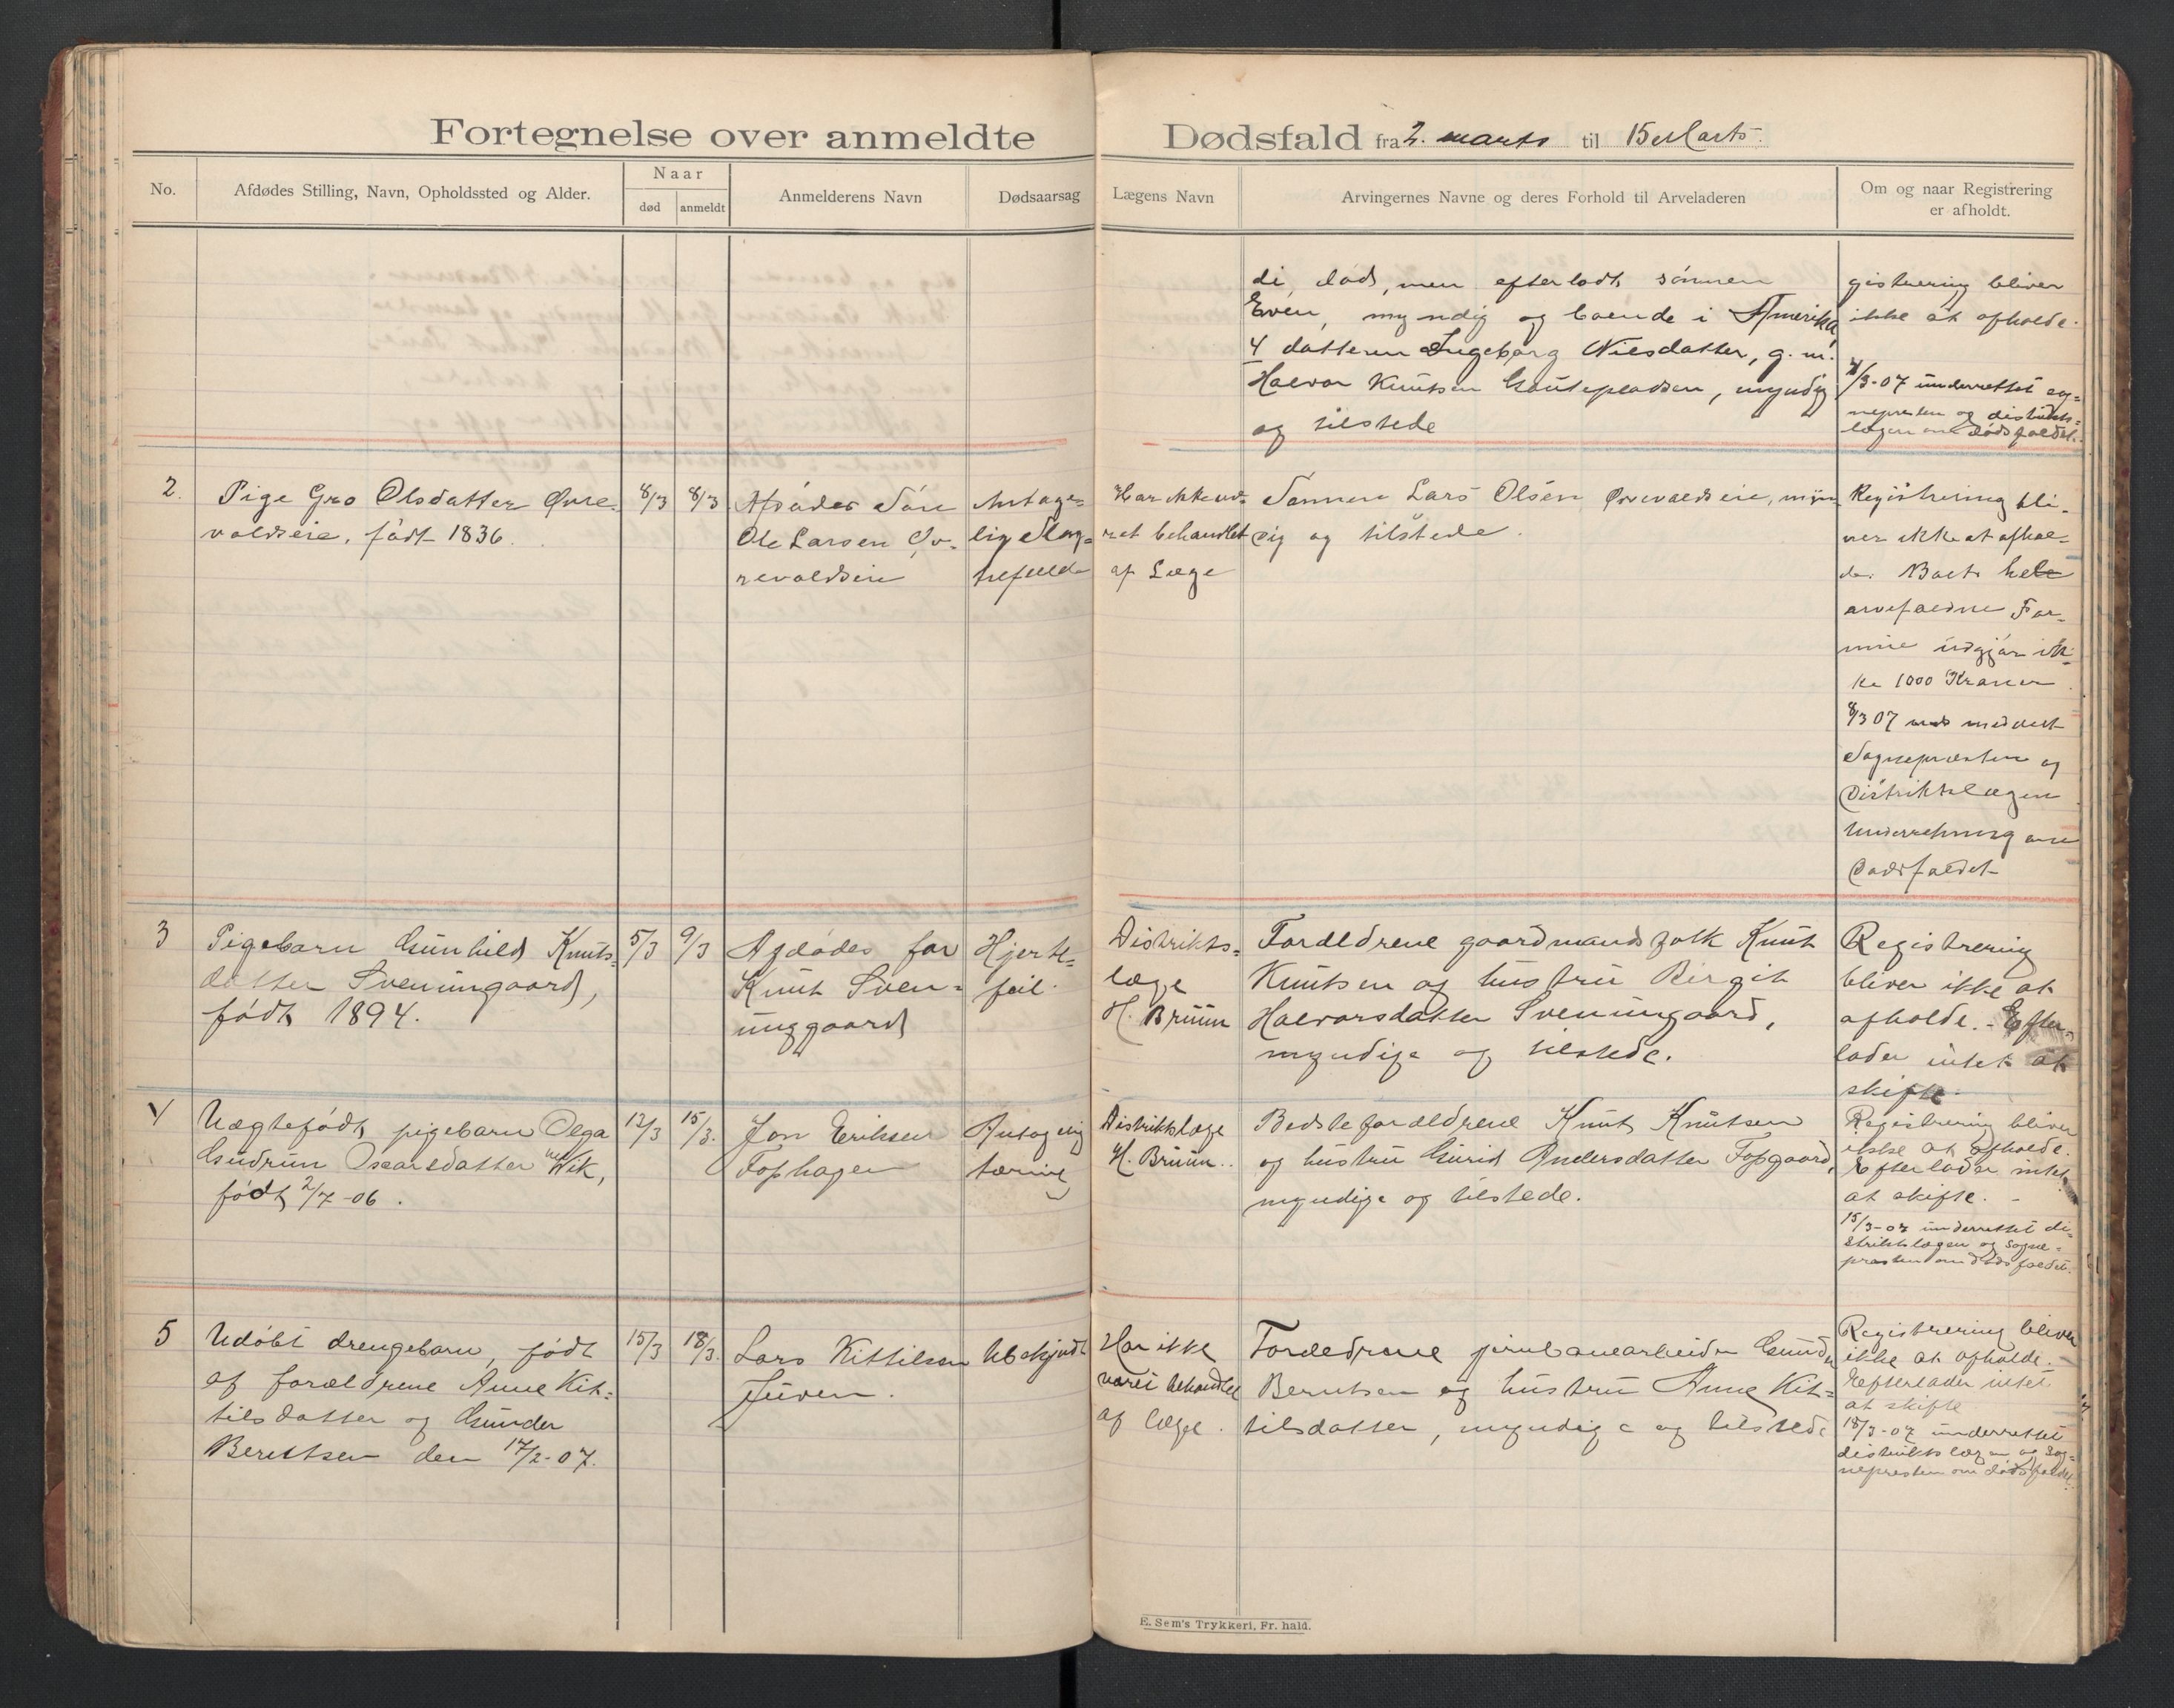 Fortegnelse over anmeldte Dødsfald fra 2. marts til 15 Marts.
No.
Afdødes Stilling, Navn, Opholdssted og Alder.
Naar
død
anmeldt
Anmelderens Navn
Dødsaarsag
Lægens Navn
Arvingernes Navne og deres Forhold til Arveladeren
Om og naar Registrering
er afholdt.
di, død, men efterlodt sønnen
Even, myndig og boende i Amerika
4 datteren Ingeborg Nilsdatter, g. m.
Halvor Knutsen, myndig
og tilstede
gistrering bliver
ikke at afholde.
4/3-07 underrettet sog-
nepresten og distrikts-
lægen om dødsfaldet.
2.
Pige Gro Olsdatter Øvre-
valdseie, født 1836.
8/3
8/3
Afdødes Søn
Ole Larsen Øv-
revaldseie
Antage-
lig Slag-
tilfælde
Har ikke væ-
ret behandlet
af Læge
Sønnen Lars Olsen Øvrevaldseie, myn-
dig og tilstede.
Registrering bli-
ver ikke at afhol-
de. Boets hele
arvefaldne For-
mue udgjør ik-
ke 1000 Kroner.
8/3 07 meddelt
Sognepræsten og
Distriktslægen
Underretning om
Dødsfaldet
3
Pigebarn Gunhild Knuts-
datter Sveningaard,
født 1894.
5/3
9/3
Afdødes far
Knut Sven-
unggaard
Hjerte-
feil.
Distrikts-
læge
H. Bruun
Forældrene gaardmandsfolk Knut
Knutsen og hustru Birgit
Halvorsdatter Sveningaard,
myndige og tilstede.
Registrering
bliver ikke at
afholde. - Efter-
lader intet at
skifte.
4
Uægtefødt pigebarn Olga
Gudrun Oscarsdatter Wik,
født 2/7-06.
12/3
15/3.
Jon Eriksen
Fophagen
Antagelig
tæring
Distriktslæge
H. Bruun..
Bedsteforældrene Knut Knutsen
og hustru Gurid Andersdatter Fopgaard,
myndige og tilstede.
Registrering bliver
ikke at afholde.
Efterlader intet
at skifte. -
15/3-07 underrettet di-
striktslægen og sogne-
præsten om dødsfaldet.
5
Udøbt drengebarn, født
af forældrene Anne Kit-
tilsdatter og Gunder
Berntsen den 17/2-07.
15/3
18/3.
Lars Kittilsen
Juven.
Ubekjendt
Har ikke
været behandlet
af læge.
Forældrene jernbanearbeider Gunder
Berntsen og hustru Anne Kit-
tilsdatter, myndige og tilstede
Registrering bliver
ikke at afholde. -
Efterlader intet
at skifte
18/3-07 underrettet
distriktslægen og sog-
nepresten om dødsfaldet.
E. Sem's Trykkeri, Fr. hald.